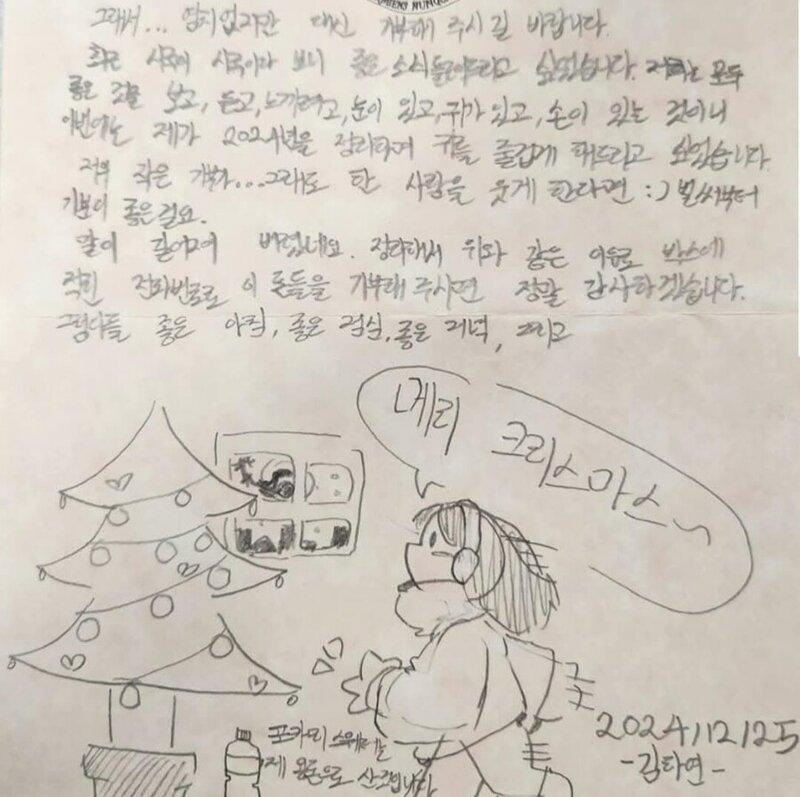 MIENS NUNQU
그래서... 염치없지만 대신 기부해 주시길 바랍니다.
최근 시국이 시국이다 보니 좋은 소식 들려드리고 싶었습니다. 저희는 모두
좋은 것을 보고, 듣고, 느끼려고, 눈이 있고, 귀가 있고, 손이 있는 것이니
이번에는 제가 2024년을 정리하며 귀를 즐겁게 해드리고 싶었습니다.
저의 작은 기부가... 그래도 한 사람을 웃게 한다면 :) 벌써부터
기분이 좋은걸요.
말이 길어져 버렸네요. 정리해서 위와 같은 이유로 박스에
적힌 전화번호로 이 돈들을 기부해 주시면 정말 감사하겠습니다.
그럼 다들 좋은 아침, 좋은 점심, 좋은 저녁, 그리고
메리 크리스마스~
포카리 스웨트는
제 용돈으로 산 것입니다
2024/12/25
-김타연-